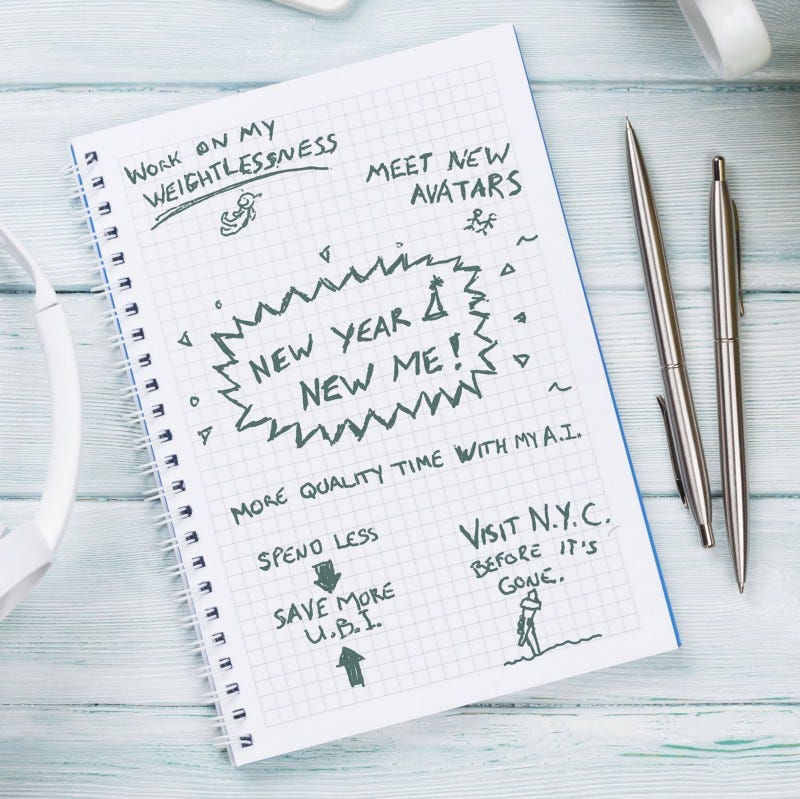 WORK ON MY
WEIGHTLESSNESS
MEET NEW
AVATARS
NEW YEAR
NEW ME!
MORE QUALITY TIME WITH MY A.I.
SPEND LESS
SAVE MORE
U.B.I.
VISIT N.Y.C.
BEFORE IT'S
GONE.